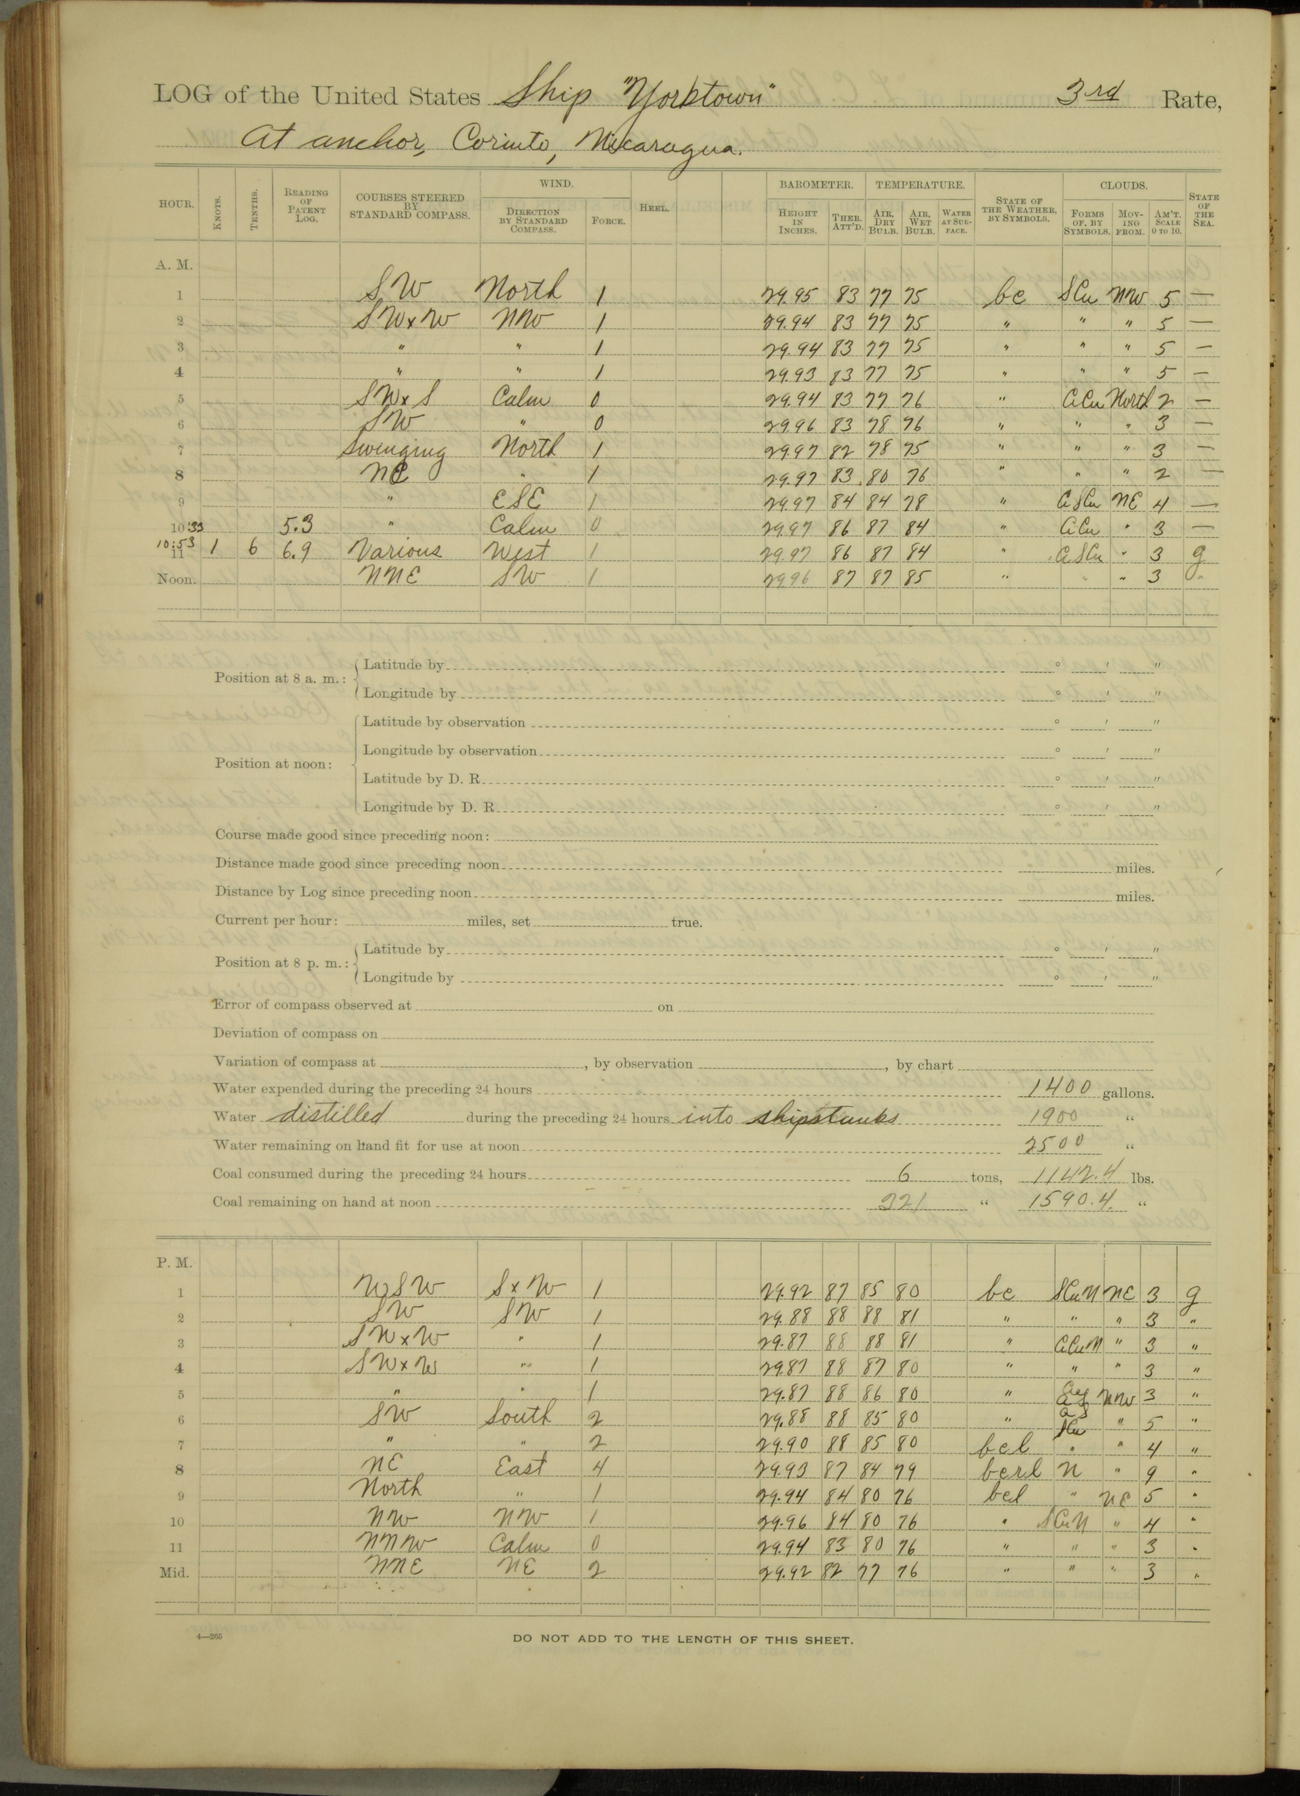 LOG of the United States Ship "Yorktown" 3rd Rate,
At anchor, Corinto, Nicaragua.
HOUR. KNOTS. TENTHS. READING OF PATENT LOG. COURSES STEERED BY STANDARD COMPASS. WIND. DIRECTION BY STANDARD COMPASS. FORCE. HEEL. BAROMETER. HEIGHT IN INCHES. THER. ATT'D. TEMPERATURE. AIR, DRY BULB. AIR, WET BULB. WATER AT SUR-FACE. STATE OF THE WEATHER, BY SYMBOLS. CLOUDS. FORMS OF, BY SYMBOLS. MOV-ING FROM. AM'T. SCALE 0 TO 10. STATE OF THE SEA.
A. M.
1 SW North 1 29.95 83 77 75 bc SCu NW 5 —
2 SWxW NW 1 29.94 83 77 75 " " " 5 —
3 " " 1 29.94 83 77 75 " " " 5 —
4 " " 1 29.93 83 77 75 " " " 5 —
5 SWxS Calm 0 29.94 83 77 76 " CCu North 2 —
6 SW " 0 29.96 83 78 76 " " " 3 —
7 Swinging North 1 29.97 82 78 75 " " " 3 —
8 NE " 1 29.97 83 80 76 " " " 2 —
9 " ESE 1 29.97 84 84 78 " CSCu NE 4 —
10:33 5.3 " Calm 0 29.97 86 87 84 " CCu " 3 —
10:53 11 1 6 6.9 Various West 1 29.97 86 87 84 " CSCu " 3 g
Noon. NNE SW 1 29.96 87 87 85 " " " 3 "
Position at 8 a. m.: Latitude by ° ' "
Longitude by ° ' "
Position at noon: Latitude by observation ° ' "
Longitude by observation ° ' "
Latitude by D. R. ° ' "
Longitude by D. R. ° ' "
Course made good since preceding noon:
Distance made good since preceding noon miles.
Distance by Log since preceding noon miles.
Current per hour: miles, set true.
Position at 8 p. m.: Latitude by ° ' "
Longitude by ° ' "
Error of compass observed at on
Deviation of compass on
Variation of compass at , by observation , by chart
Water expended during the preceding 24 hours 1400 gallons.
Water distilled during the preceding 24 hours into ships tanks 1900 "
Water remaining on hand fit for use at noon 2500 "
Coal consumed during the preceding 24 hours 6 tons, 1142.4 lbs.
Coal remaining on hand at noon 221 " 1590.4. "
P. M.
1 WSW SxW 1 29.92 87 85 80 bc SCuN NE 3 g
2 SW SW 1 29.88 88 88 81 " " " 3 "
3 SWxW " 1 29.87 88 88 81 " CCuN " 3 "
4 SWxW " 1 29.87 88 87 80 " " " 3 "
5 " " 1 29.87 88 86 80 " NNW 3 "
6 SW South 2 29.88 88 85 80 " CS SCu " 5 "
7 " " 2 29.90 88 85 80 bcl " " 4 "
8 NE East 4 29.93 87 84 79 bcrl N " 9 "
9 North " 1 29.94 84 80 76 bcl " NE 5 "
10 NW NW 1 29.96 84 80 76 " SCuN " 4 "
11 NNW Calm 0 29.94 83 80 76 " " " 3 "
Mid. NNE NE 2 29.92 82 77 76 " " " 3 "
4—265
DO NOT ADD TO THE LENGTH OF THIS SHEET.